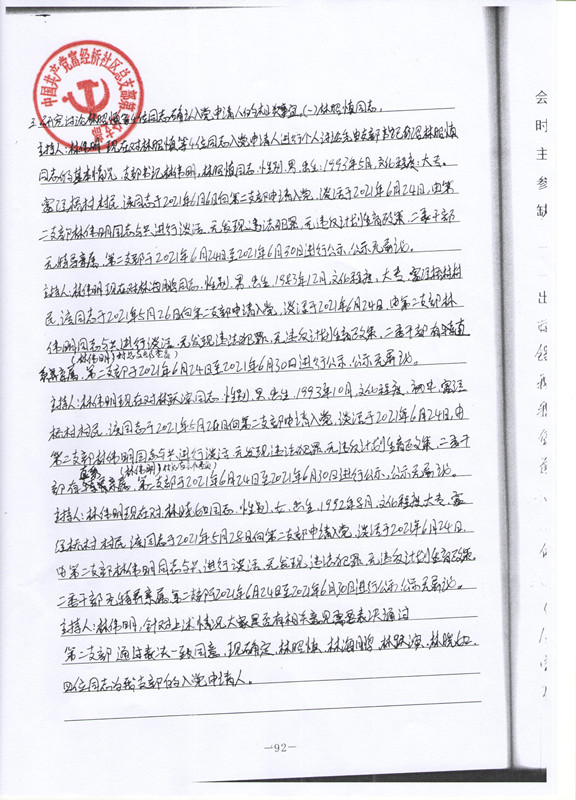 中国共产党富经桥社区总支部第二支部
三、研究讨论林照慎等4位同志确认入党申请人的相关事宜,(一)林照慎同志。
主持人:林伟明 现在对林照慎等4位同志入党申请人进行个人评论先由支部书记介绍林照慎
同志的基本情况,支部书记林伟明,林照慎同志,性别,男,出生:1993年5月,文化程度:大专,
桥村村民,该同志于2021年6月6日向第二支部申请入党,谈话于2021年6月24日,由第
二支部林伟明同志与其进行谈话,无发现违法犯罪,无违反计划生育政策,二委干部
无直系亲属,第二支部于2021年6月24日至2021年6月30日进行公示,公示无异议。
主持人:林伟明 现在对林海鹏同志,性别,男,出生,1983年12月,文化程度,大专,桥村村
民,该同志于2021年5月26日向第二支部申请入党,谈话于2021年6月24日,由第二支部林
伟明同志与其进行谈话,无发现违法犯罪,无违反计划生育政策,二委干部有直
(林伟明)
系亲属,第二支部于2021年6月24日至2021年6月30日进行公示,公示无异议。
主持人:林伟明现在对林跃滨同志,性别,男,出生,1993年10月,文化程度,初中,
桥村村民,该同志于2021年5月26日向第二支部申请入党,谈话于2021年6月24日,由
第二支部林伟明同志与其进行谈话,无发现违法犯罪,无违反计划生育政策,二委干
(林伟明)
部有亲属,第二支部于2021年6月24日至2021年6月30日进行公示,公示无异议。
主持人:林伟明现在对林晓如同志,性别,女,出生,1992年8月,文化程度大专,
桥村村民,该同志于2021年5月28日向第二支部申请入党,谈话于2021年6月24日,
由第二支部林伟明同志与其进行谈话,无发现违法犯罪,无违反计划生育政策,
二委干部无亲属,第二支部于2021年6月24日至2021年6月30日进行公示,公示无异议。
主持人:林伟明,针对上述情况大家是否有相关意见需要表决通过
第二支部通过表决一致同意,现确定,林照慎,林海鹏,林跃滨,林晓如,
四位同志为我支部的入党申请人。
—92—
会
时
主
参
缺